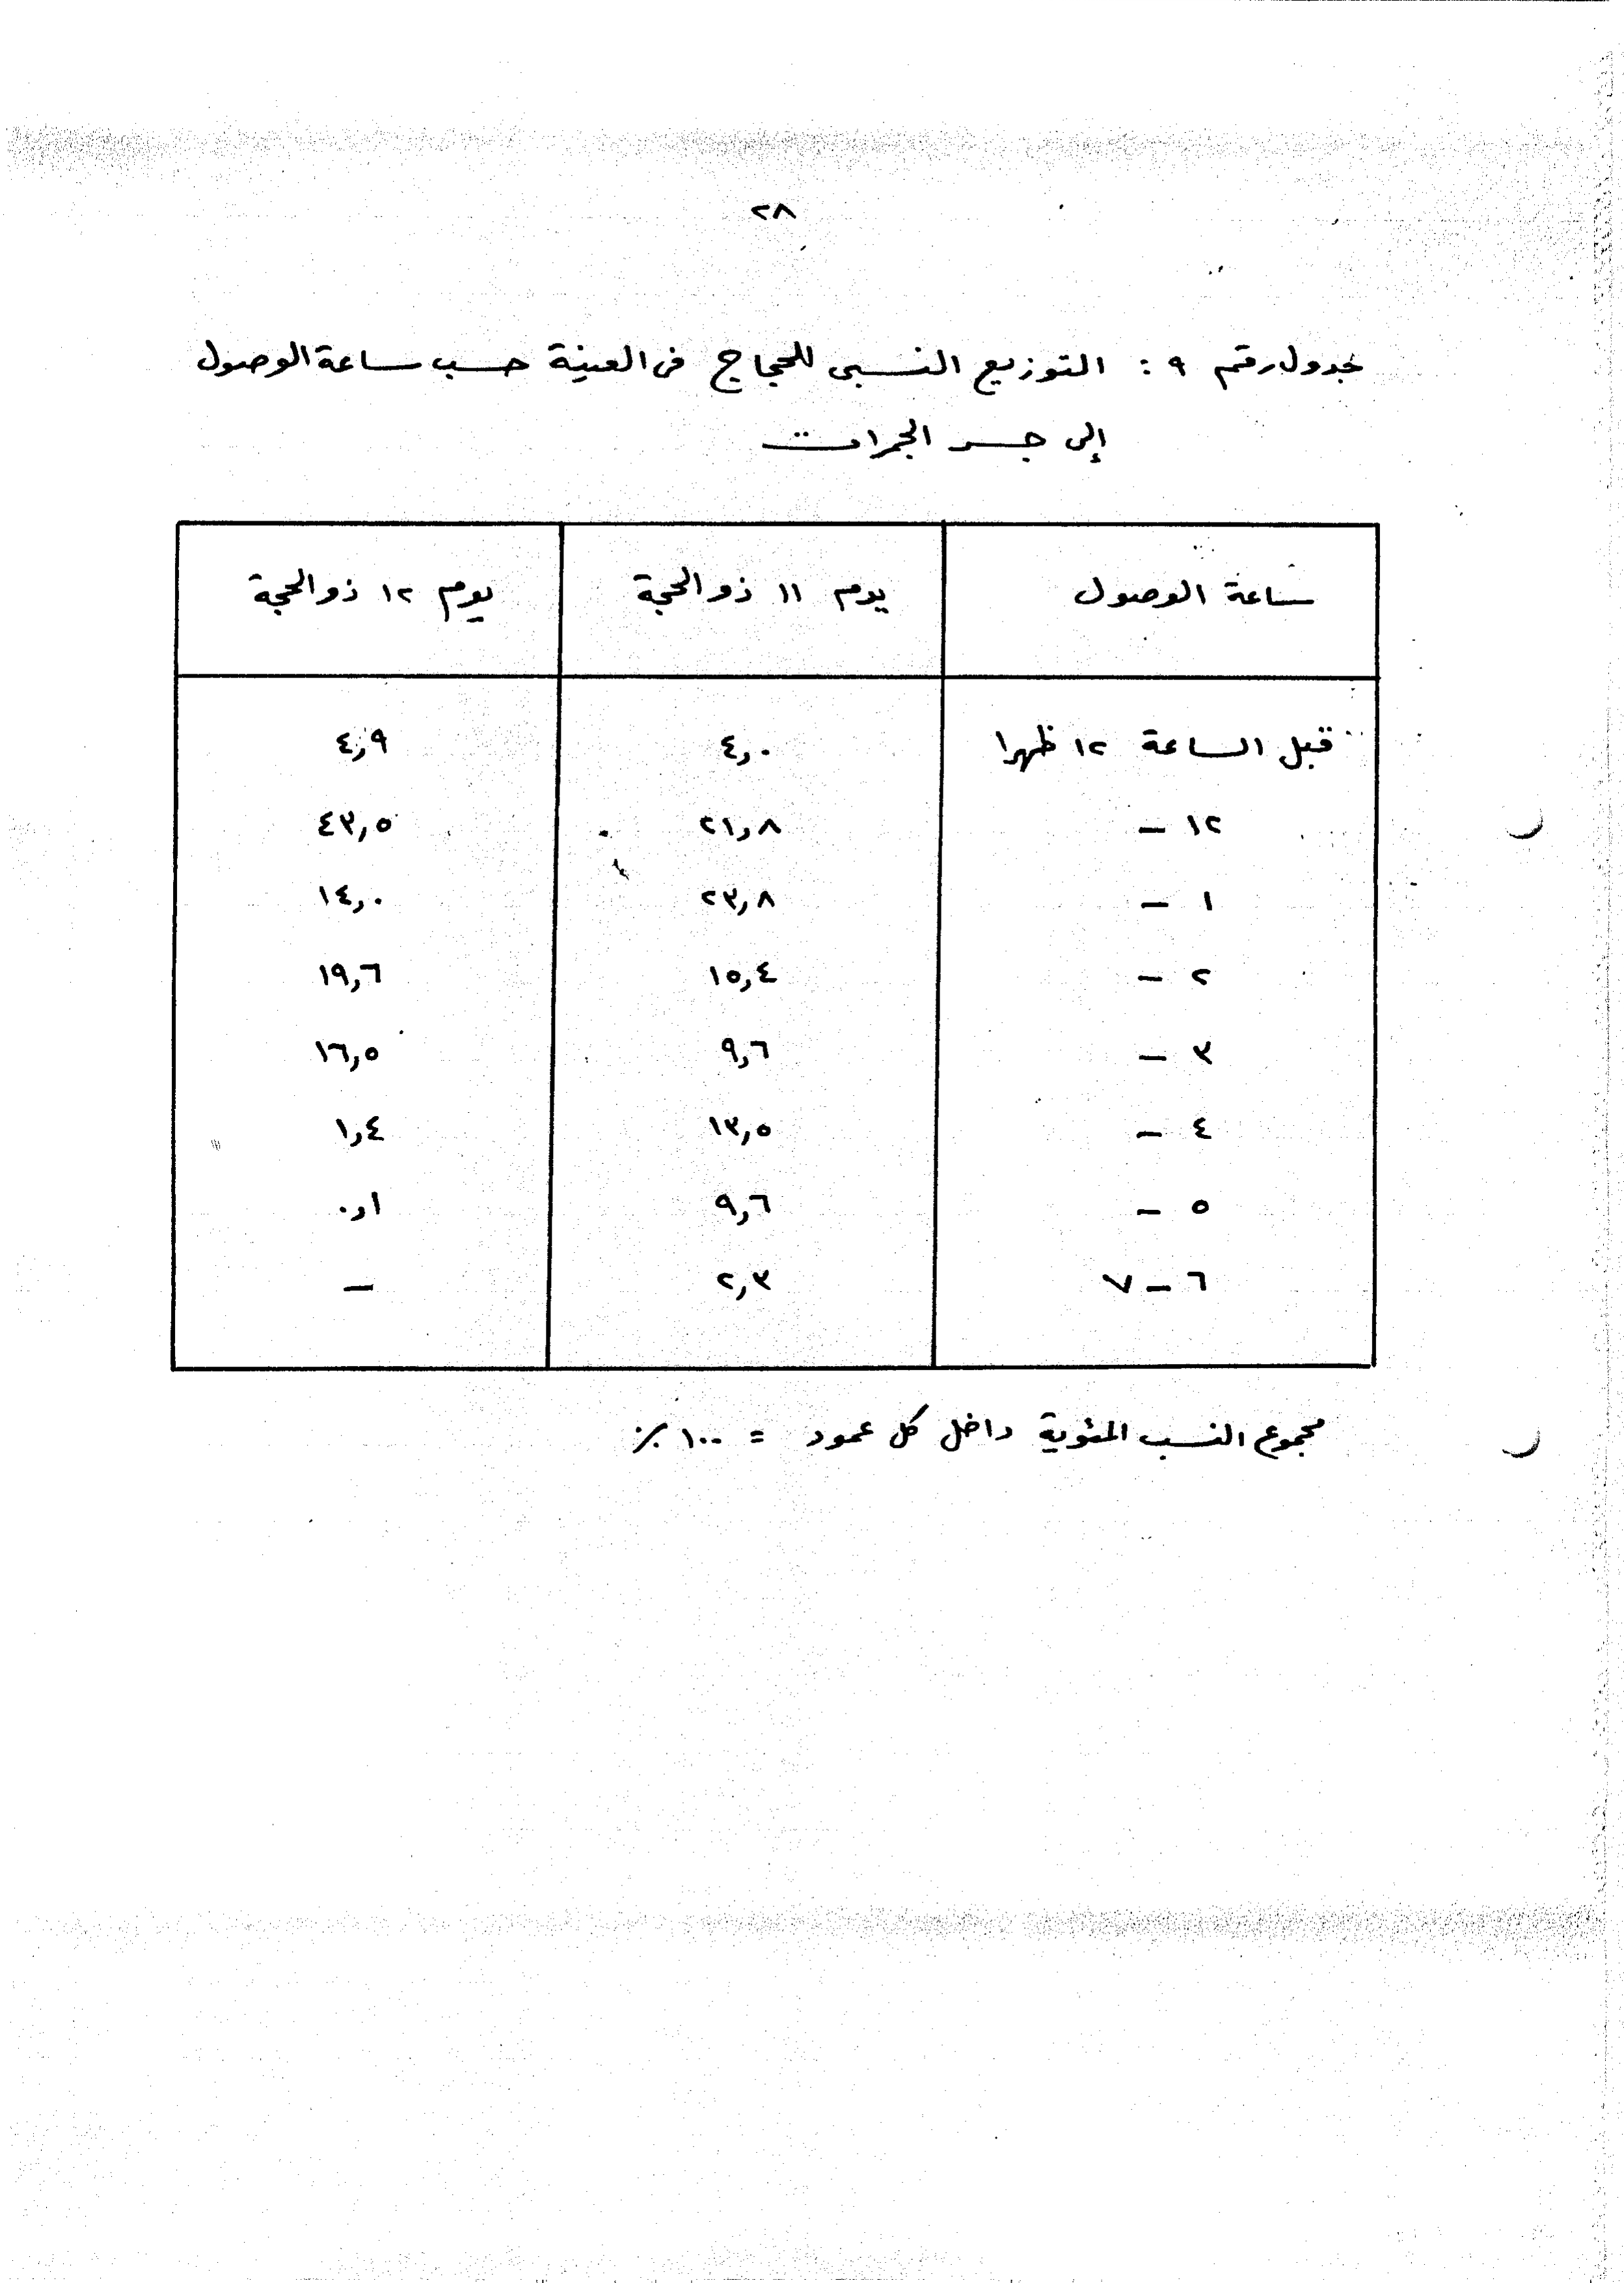 ٢٨
جدول رقم ٩ : التوزيع النسبى للحجاج فى العينة حسب ساعة الوصول
إلى جسر الجمرات
ساعة الوصول يوم ١١ ذو الحجة يوم ١٢ ذو الحجة
قبل الساعة ١٢ ظهرا ٤,٠ ٤,٩
١٢ – ٢١,٨ ٤٣,٥
١ – ٢٣,٨ ١٤,٠
٢ – ١٥,٤ ١٩,٦
٣ – ٩,٦ ١٦,٥
٤ – ١٣,٥ ١,٤
٥ – ٩,٦ ٠,١
٦ – ٧ ٢,٣ –
مجموع النسب المئوية داخل كل عمود = ١٠٠ ٪